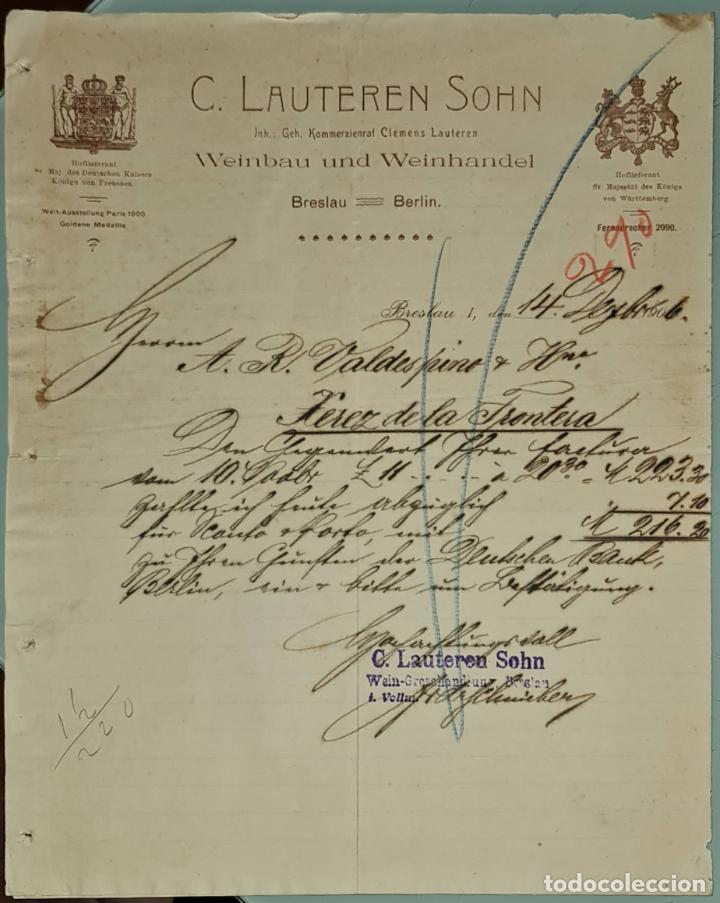 C. LAUTEREN SOHN
Inh.: Geh. Kommerzienrat Clemens Lauteren
Weinbau und Weinhandel
Breslau Berlin.
Hoflieferant
Sr. Maj. des Deutschen Kaisers
Königs von Preussen.
Welt-Ausstellung Paris 1900
Goldene Medaille.
Hoflieferant
Sr. Majestät des Königs
von Württemberg
Fernsprecher 2090.
290
Breslau I, den 14. Dezbr. 1906.
Herrn
A. R. Valdespino & Hno
Xerez de la Frontera
Den Gegenwert Ihrer Factura
vom 10. Novbr £ 11 . . . . . à 20.30 = M 223.30
zahlte ich heute abzüglich " 7.10
für Sconto & Porto, mit M 216.20
zu Ihren Gunsten der Deutschen Bank,
Berlin, ein & bitte um Bestätigung.
Hochachtungsvoll
C. Lauteren Sohn
Wein-Grosshandlung, Breslau
i. Vollm.
12/220
todocoleccion.net